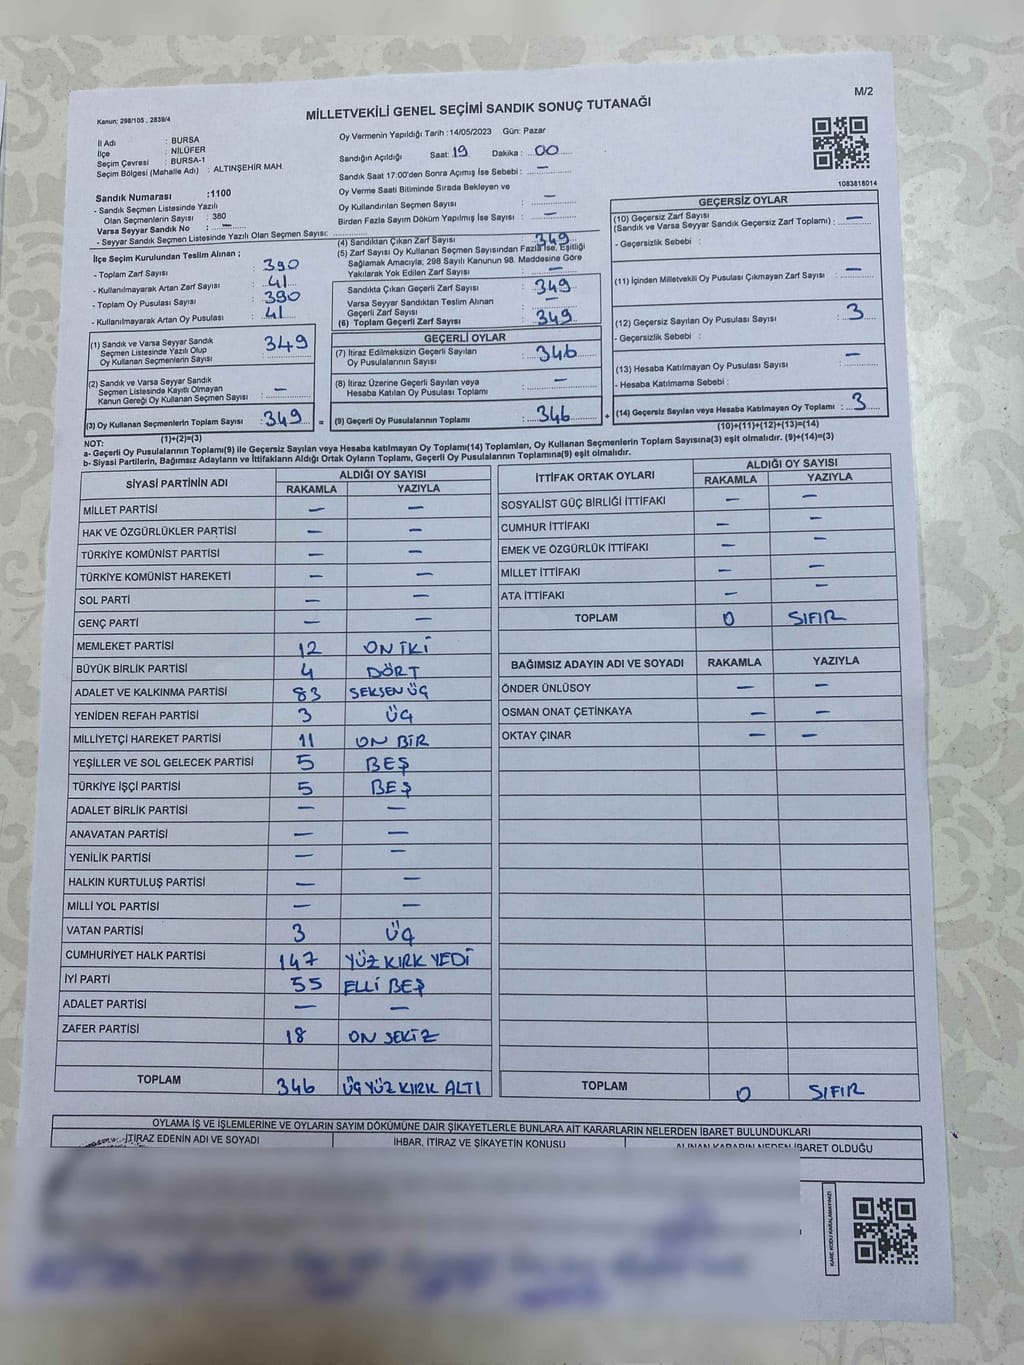 M/2
MİLLETVEKİLİ GENEL SEÇİMİ SANDIK SONUÇ TUTANAĞI
Kanun; 298/105 , 2839/4
İl Adı : BURSA
İlçe : NİLÜFER
Seçim Çevresi : BURSA-1
Seçim Bölgesi (Mahalle Adı) : ALTINŞEHİR MAH.
Oy Vermenin Yapıldığı Tarih :14/05/2023 Gün: Pazar
Sandığın Açıldığı Saat: 19 Dakika : 00
Sandık Saat 17:00'den Sonra Açımış İse Sebebi : —
Oy Verme Saati Bitiminde Sırada Bekleyen ve
Oy Kullandırılan Seçmen Sayısı : —
Birden Fazla Sayım Döküm Yapılmış İse Sayısı : —
1083818014
Sandık Numarası :1100
- Sandık Seçmen Listesinde Yazılı
Olan Seçmenlerin Sayısı : 380
Varsa Seyyar Sandık No : —
- Seyyar Sandık Seçmen Listesinde Yazılı Olan Seçmen Sayısı:
İlçe Seçim Kurulundan Teslim Alınan ;
- Toplam Zarf Sayısı : 390
- Kullanılmayarak Artan Zarf Sayısı : 41
- Toplam Oy Pusulası Sayısı : 390
- Kullanılmayarak Artan Oy Pusulası : 41
(1) Sandık ve Varsa Seyyar Sandık
Seçmen Listesinde Yazılı Olup
Oy Kullanan Seçmenlerin Sayısı : 349
(2) Sandık ve Varsa Seyyar Sandık
Seçmen Listesinde Kayıtlı Olmayan
Kanun Gereği Oy Kullanan Seçmen Sayısı : —
(3) Oy Kullanan Seçmenlerin Toplam Sayısı : 349
(1)+(2)=(3)
(4) Sandıktan Çıkan Zarf Sayısı : 349
(5) Zarf Sayısı Oy Kullanan Seçmen Sayısından Fazla İse, Eşitliği
Sağlamak Amacıyla; 298 Sayılı Kanunun 98. Maddesine Göre
Yakılarak Yok Edilen Zarf Sayısı : —
Sandıkta Çıkan Geçerli Zarf Sayısı : 349
Varsa Seyyar Sandıktan Teslim Alınan
Geçerli Zarf Sayısı : —
(6) Toplam Geçerli Zarf Sayısı : 349
GEÇERLİ OYLAR
(7) İtiraz Edilmeksizin Geçerli Sayılan
Oy Pusulalarının Sayısı : 346
(8) İtiraz Üzerine Geçerli Sayılan veya
Hesaba Katılan Oy Pusulası Toplamı : —
= (9) Geçerli Oy Pusulalarının Toplamı : 346
GEÇERSİZ OYLAR
(10) Geçersiz Zarf Sayısı
(Sandık ve Varsa Seyyar Sandık Geçersiz Zarf Toplamı) : —
- Geçersizlik Sebebi :
(11) İçinden Milletvekili Oy Pusulası Çıkmayan Zarf Sayısı : —
(12) Geçersiz Sayılan Oy Pusulası Sayısı : 3
- Geçersizlik Sebebi :
(13) Hesaba Katılmayan Oy Pusulası Sayısı : —
- Hesaba Katılmama Sebebi :
+ (14) Geçersiz Sayılan veya Hesaba Katılmayan Oy Toplamı : 3
(10)+(11)+(12)+(13)=(14)
NOT:
a- Geçerli Oy Pusulalarının Toplamı(9) ile Geçersiz Sayılan veya Hesaba katılmayan Oy Toplamı(14) Toplamları, Oy Kullanan Seçmenlerin Toplam Sayısına(3) eşit olmalıdır. (9)+(14)=(3)
b- Siyasi Partilerin, Bağımsız Adayların ve İttifakların Aldığı Ortak Oyların Toplamı, Geçerli Oy Pusulalarının Toplamına(9) eşit olmalıdır.
SİYASİ PARTİNİN ADI ALDIĞI OY SAYISI
RAKAMLA YAZIYLA
MİLLET PARTİSİ — —
HAK VE ÖZGÜRLÜKLER PARTİSİ — —
TÜRKİYE KOMÜNİST PARTİSİ — —
TÜRKİYE KOMÜNİST HAREKETİ — —
SOL PARTİ — —
GENÇ PARTİ — —
MEMLEKET PARTİSİ 12 ON İKİ
BÜYÜK BİRLİK PARTİSİ 4 DÖRT
ADALET VE KALKINMA PARTİSİ 83 SEKSEN ÜÇ
YENİDEN REFAH PARTİSİ 3 ÜÇ
MİLLİYETÇİ HAREKET PARTİSİ 11 ON BİR
YEŞİLLER VE SOL GELECEK PARTİSİ 5 BEŞ
TÜRKİYE İŞÇİ PARTİSİ 5 BEŞ
ADALET BİRLİK PARTİSİ — —
ANAVATAN PARTİSİ — —
YENİLİK PARTİSİ — —
HALKIN KURTULUŞ PARTİSİ — —
MİLLİ YOL PARTİSİ — —
VATAN PARTİSİ 3 ÜÇ
CUMHURİYET HALK PARTİSİ 147 YÜZ KIRK YEDİ
İYİ PARTİ 55 ELLİ BEŞ
ADALET PARTİSİ — —
ZAFER PARTİSİ 18 ON SEKİZ
TOPLAM 346 ÜÇ YÜZ KIRK ALTI
İTTİFAK ORTAK OYLARI ALDIĞI OY SAYISI
RAKAMLA YAZIYLA
SOSYALİST GÜÇ BİRLİĞİ İTTİFAKI — —
CUMHUR İTTİFAKI — —
EMEK VE ÖZGÜRLÜK İTTİFAKI — —
MİLLET İTTİFAKI — —
ATA İTTİFAKI — —
TOPLAM 0 SIFIR
BAĞIMSIZ ADAYIN ADI VE SOYADI RAKAMLA YAZIYLA
ÖNDER ÜNLÜSOY — —
OSMAN ONAT ÇETİNKAYA — —
OKTAY ÇINAR — —
TOPLAM 0 SIFIR
OYLAMA İŞ VE İŞLEMLERİNE VE OYLARIN SAYIM DÖKÜMÜNE DAİR ŞİKAYETLERLE BUNLARA AİT KARARLARIN NELERDEN İBARET BULUNDUKLARI
İTİRAZ EDENİN ADI VE SOYADI İHBAR, İTİRAZ VE ŞİKAYETİN KONUSU ALINAN KARARIN NEDEN İBARET OLDUĞU
KARE KODU KARALAMAYINIZ!